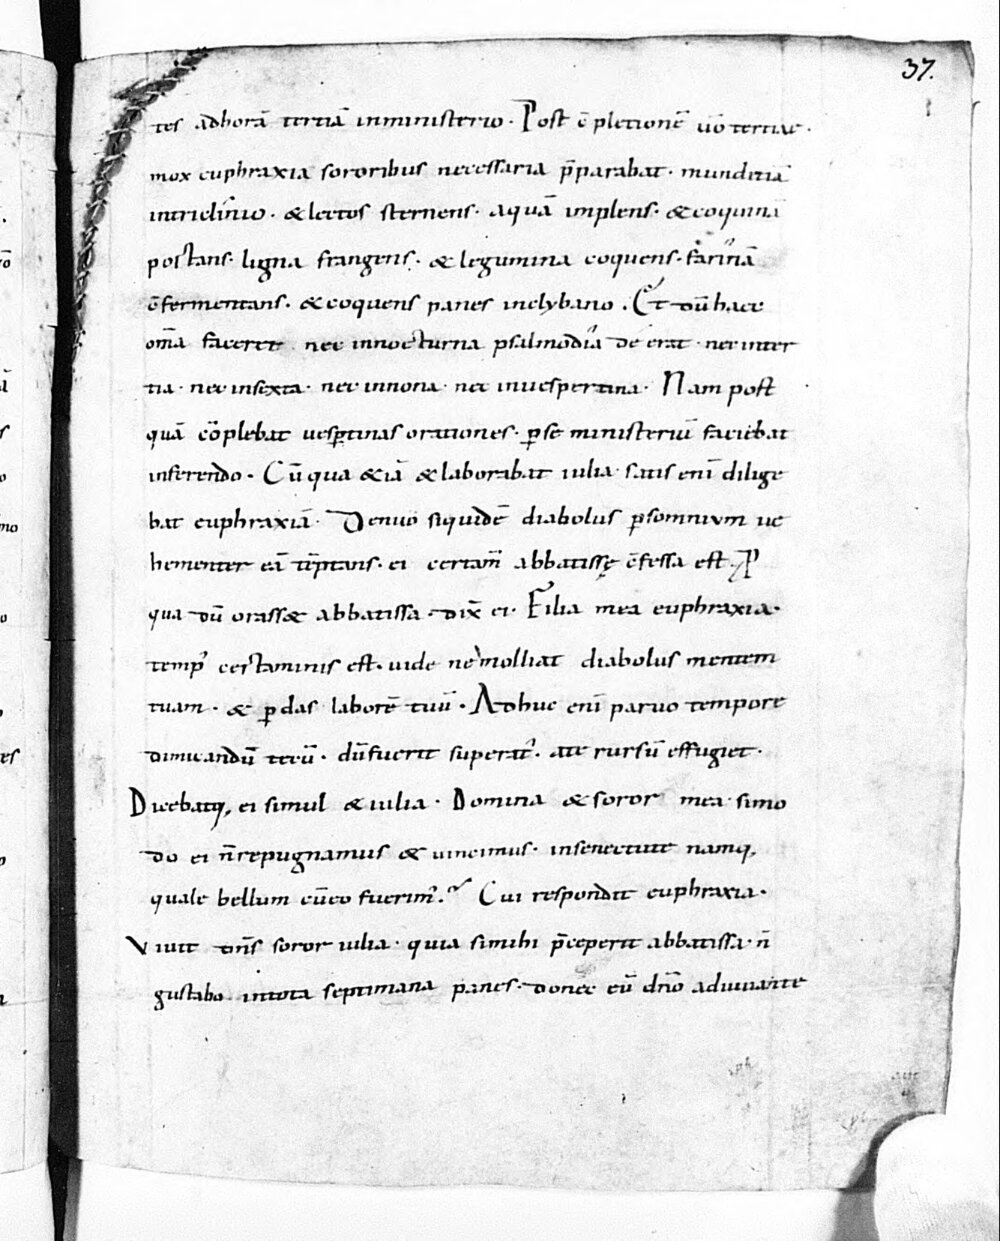 37.
tes adhorā tertiā inministerio · Post c̄pletionē ūo tertiae ·
mox euphraxia sororibus necessaria p̄parabat · munditiā
intriclinio · &lectos sternens · aquā implens · &coquinā
postans · ligna frangens · & legumina coquens · farinā
c̄fermentans · &coquens panes inclybano . Et dū haec
om̄a faceret nec innocturna psalmodia de erat · necinter
tia · necinsexta · nec innona · nec inuespertina · Nam post
quā cōplebat uesꝑtinas orationes · ꝑse ministeriū faciebat
inferendo · Cū qua &iā &laborabat iulia · satis enī dilige
bat euphraxiā · Denuo siquidē diabolus ꝑsomnium ue
hementer eā tēptans · ei certam̄ abbatissę c̄fessa est . P
qua dū orass& abbatissa · dix̄ ei · Filia mea euphraxia ·
temp' certaminis est · uide ne molliat diabolus mentem
tuam · & ꝑdas laborē tuū · Adhuc enī paruo tempore
dimicandū tecū · dūfuerit superat' · a te rursū effugiet ·
Dicebatq, ei simul &iulia · Domina & soror mea · simo
do ei n̄repugnamus & uincimus · insenectute namq,
quale bellum cūeo fuerim' . Cui respondit euphraxia ·
Viuit dn̄s soror iulia · quia simihi p̄ceperit abbatissa · n̄
gustabo intota septimana panes · donec cū dn̄o adiuuante